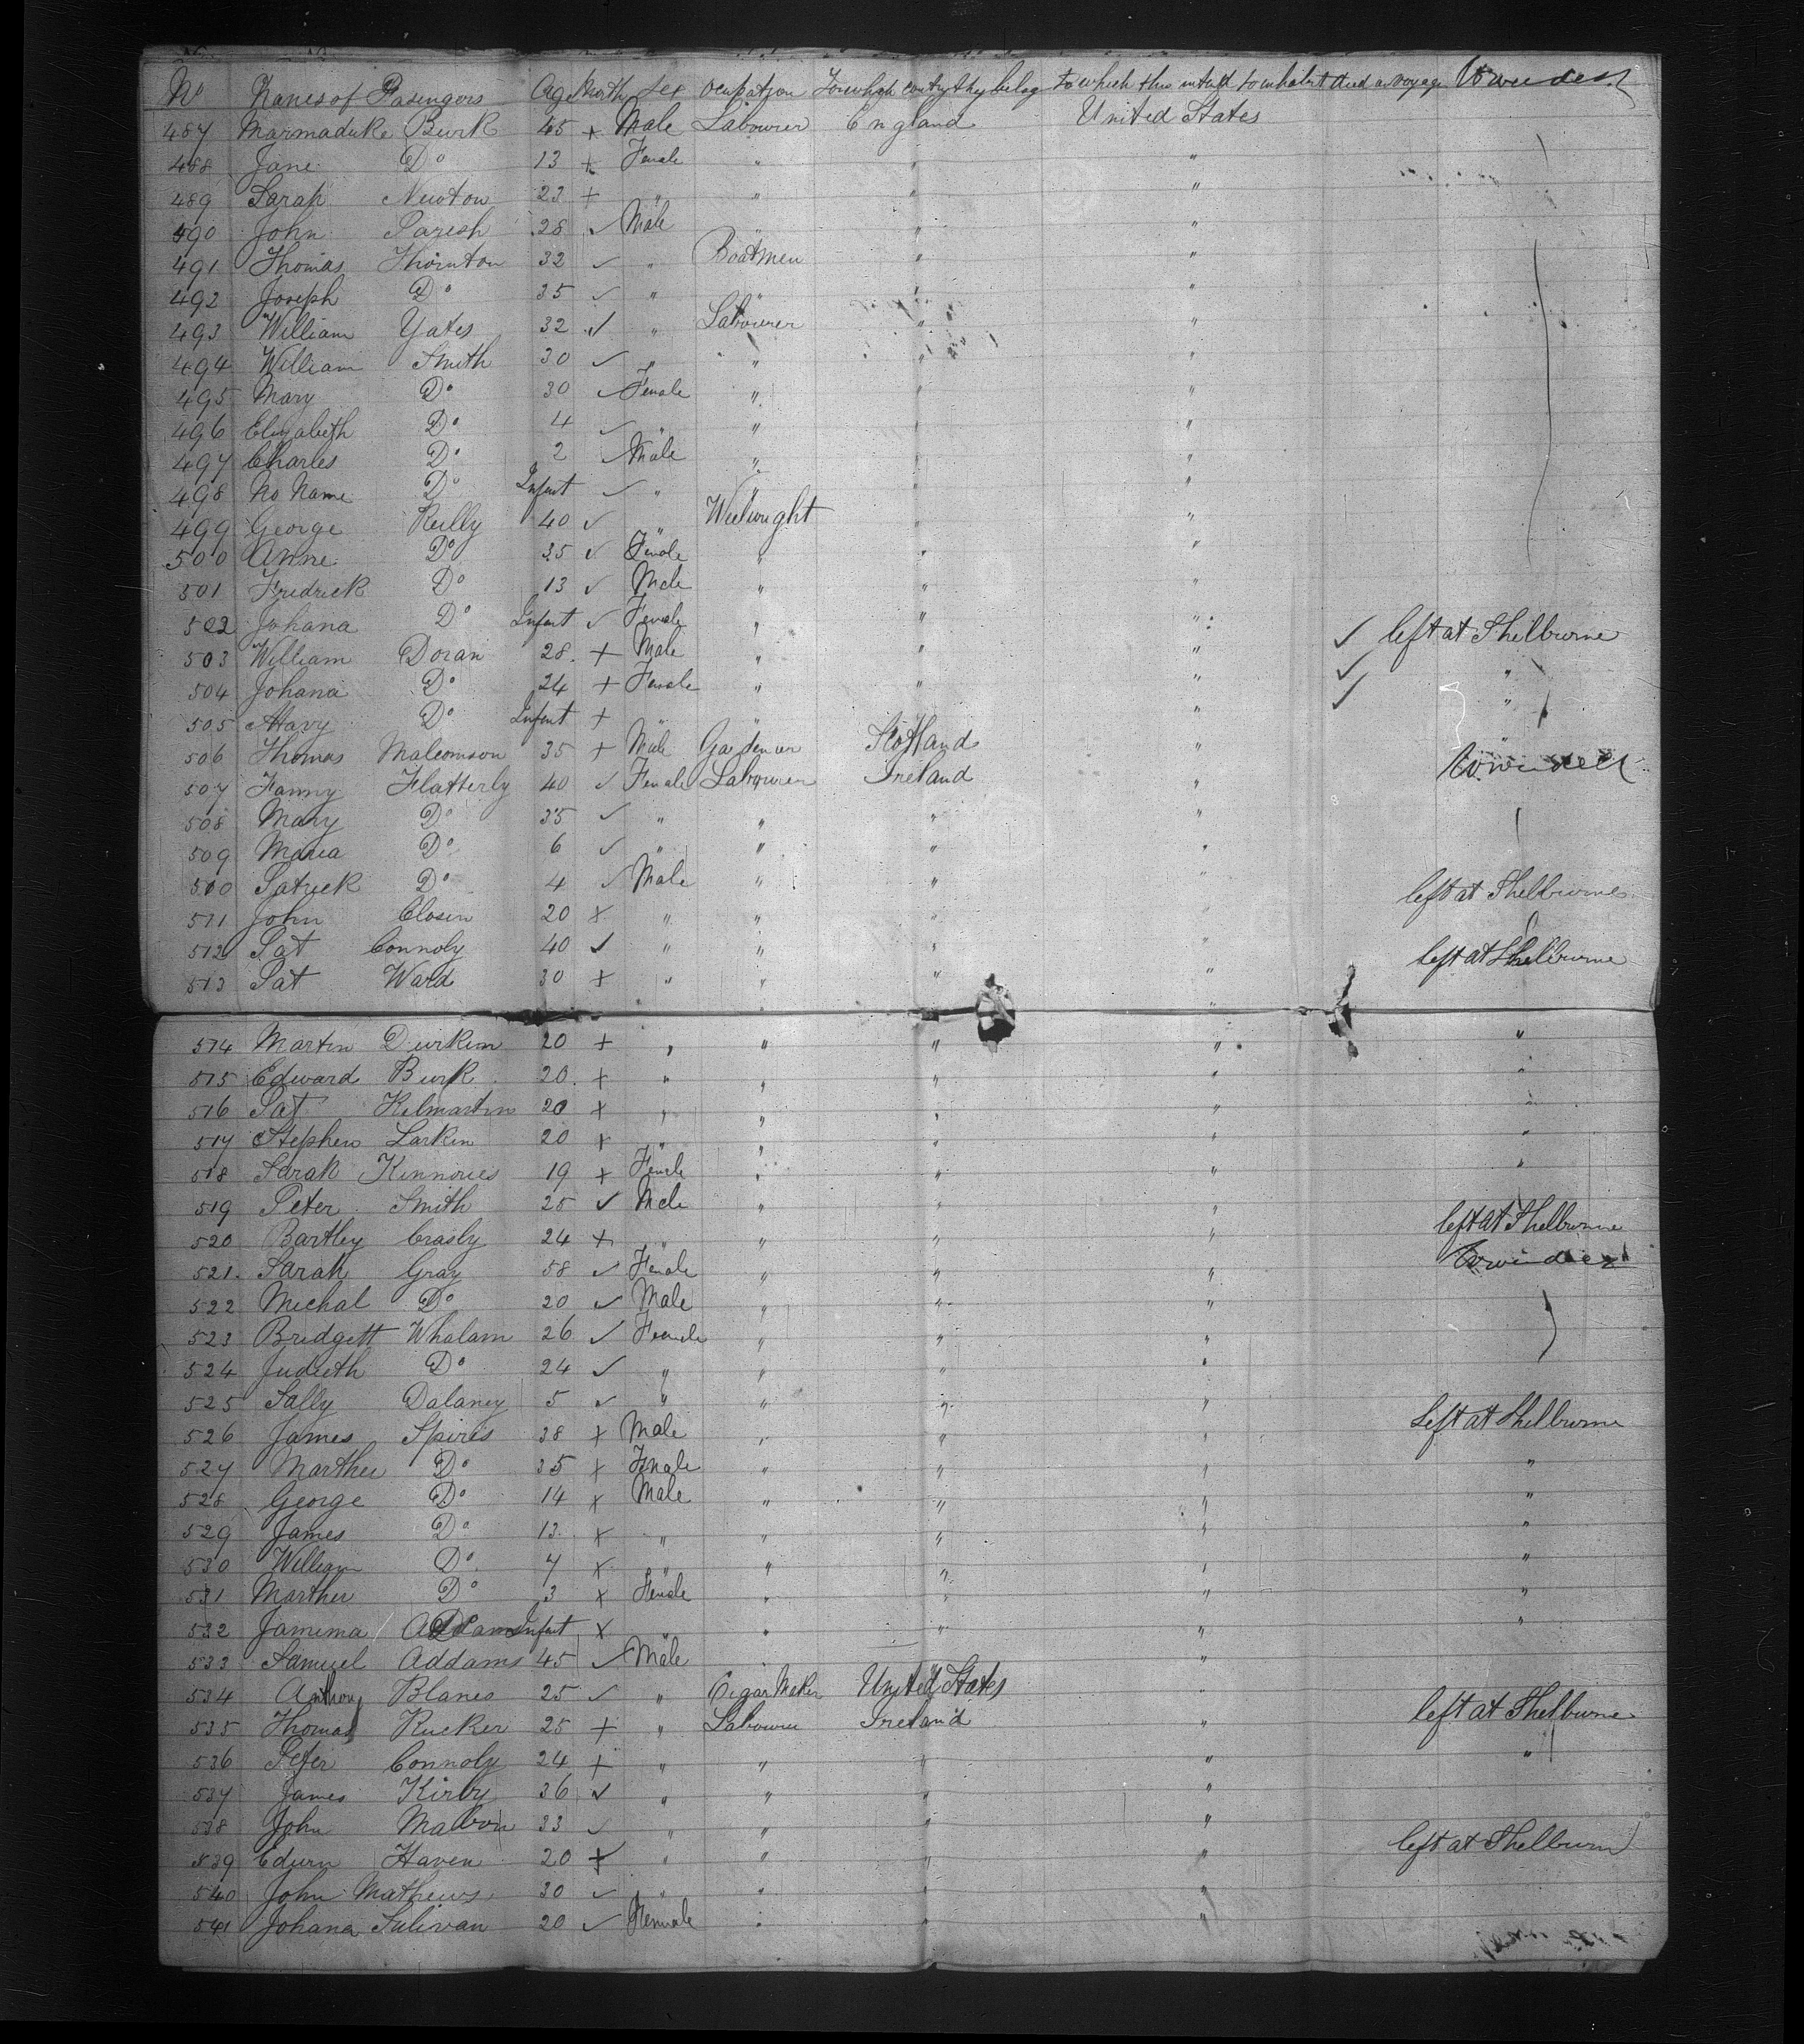 No Names of Pasengers Age Sex Ocupation To which
487 Marmaduke Burk 45 + Male Labourer England United States
488 Jane Do 13 + Female " " "
489 Sarah Newton 23 + " " " "
490 John Parish 28 ✓ Male " " "
491 Thomas Thornton 32 ✓ " Boatmen " "
492 Joseph Do 35 ✓ " " " "
493 William Yates 32 ✓ " Labourer " "
494 William Smith 30 ✓ " " " "
495 Mary Do 30 ✓ Female " " "
496 Elizabeth Do 4 ✓ " " " "
497 Charles Do 2 ✓ Male " " "
498 No Name Do Infant ✓ " " " "
499 George Reilly 40 ✓ " Weelwright " "
500 Anne Do 35 ✓ Female " " "
501 Fredrick Do 13 ✓ Male " " "
502 Johana Do Infant ✓ Female " " "
503 William Doran 28 + Male " " " ✓ left at Shelburne
504 Johana Do 24 + Female " " " ✓ "
505 Mary Do Infant + " " " " ✓ "
506 Thomas Malcomson 35 + Male Gardener Scotland "
507 Fanny Flatterly 40 ✓ Female Labourer Ireland "
508 Mary Do 35 ✓ " " " "
509 Maria Do 6 ✓ " " " "
510 Patrick Do 4 ✓ Male " " "
511 John 20 + " " " " left at Shelburne
512 Pat Connoly 40 ✓ " " " "
513 Pat Ward 30 + " " " " left at Shelburne
514 Martin Durkin 20 + " " " " "
515 Edward Burk 20 + " " " " "
516 Pat Kilmartin 20 + " " " " "
517 Stephen Larkin 20 + " " " " "
518 Sarah 19 + Female " " " "
519 Peter Smith 25 ✓ Male " " "
520 Bartley 24 + " " " " left at Shelburne
521 Sarah Gray 58 ✓ Female " " "
522 Michal Do 20 ✓ Male " " "
523 Bridgett Whalam 26 ✓ Female " " "
524 Judieth Do 24 ✓ " " " "
525 Sally Dalaney 5 ✓ " " " "
526 James Spires 38 + Male " " " Left at Shelburne
527 Marther Do 35 + Female " " " "
528 George Do 14 + Male " " " "
529 James Do 13 + " " " " "
530 William Do 7 + " " " " "
531 Marther Do 3 + Female " " " "
532 Jamima Do Infant + " " " " "
533 Samuel Addams 45 ✓ Male " " "
534 Anthony Blanes 25 ✓ " Cigar Maker United States "
535 Thomas Rucker 25 + " Labourer Ireland " left at Shelburne
536 Peter Connoly 24 + " " " " "
537 James Kirby 36 ✓ " " " "
538 John 33 ✓ " " " "
539 Haven 20 + " " " " left at Shelburn
540 John Mathews 30 ✓ " " " "
541 Johana Sulivan 20 ✓ Female " " "